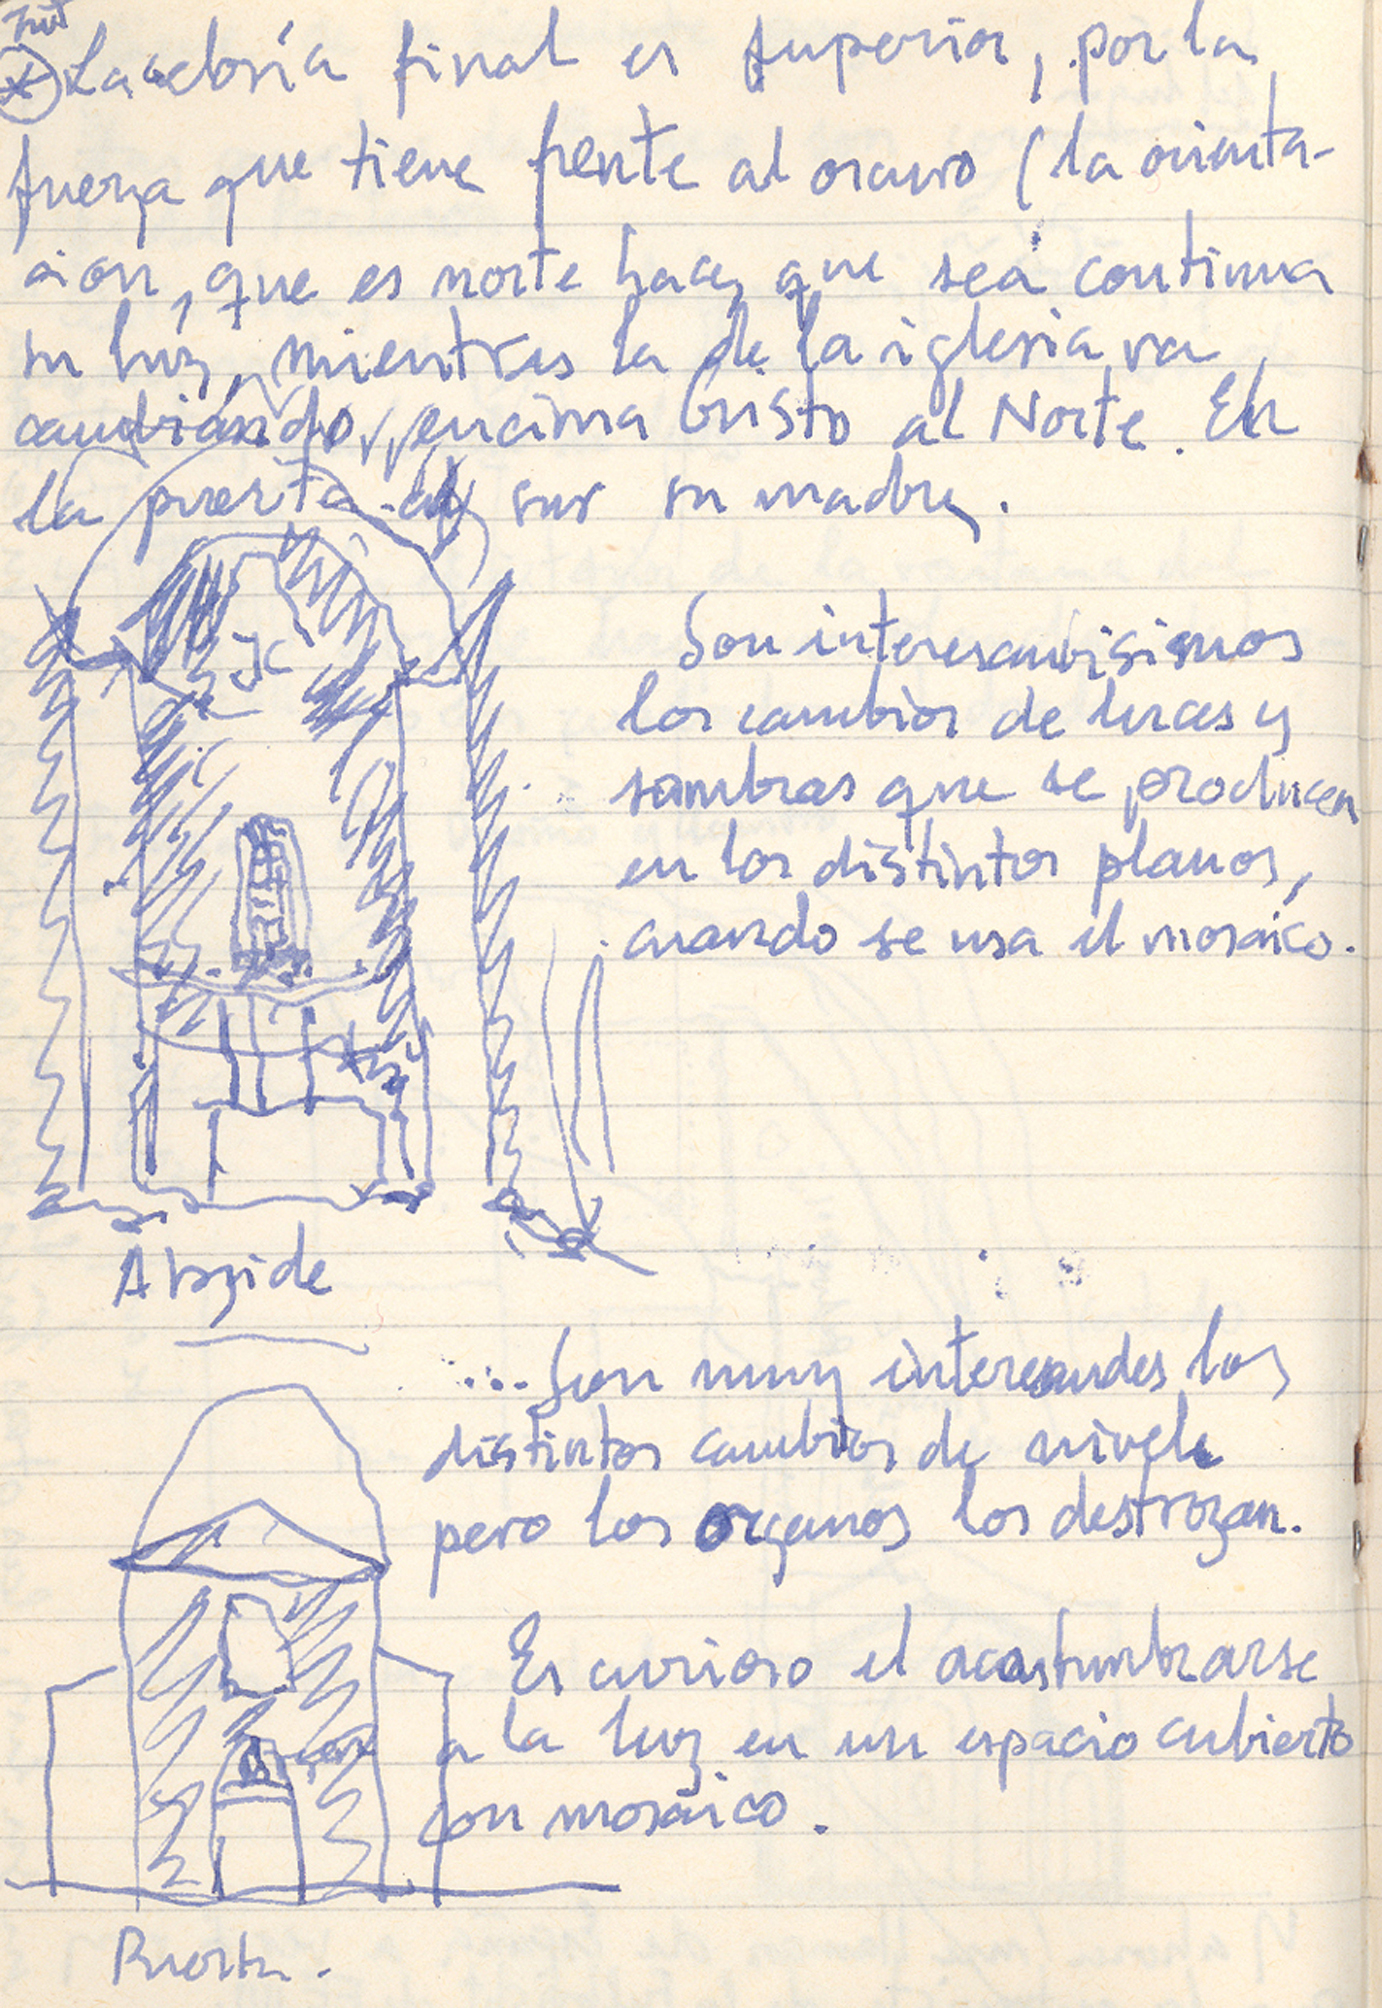 La celosía final es superior, por la
fuerza que tiene frente al oscuro (la orienta-
cion, que es norte hace que sea continua
su luz, mientras la de la iglesia va
cambiándo, encima Cristo al Norte. En
la puerta al sur su madre.
Son interesantisimos
los cambios de luces y
sombras que se producen
en los distintos planos,
cuando se usa el mosaico.
Abside
... Son muy interesantes los
distintos cambios de nivele
pero los organos los destrozan.
Es curioso el acostumbrarse
a la luz en un espacio cubierto
con mosaico.
Puerta.